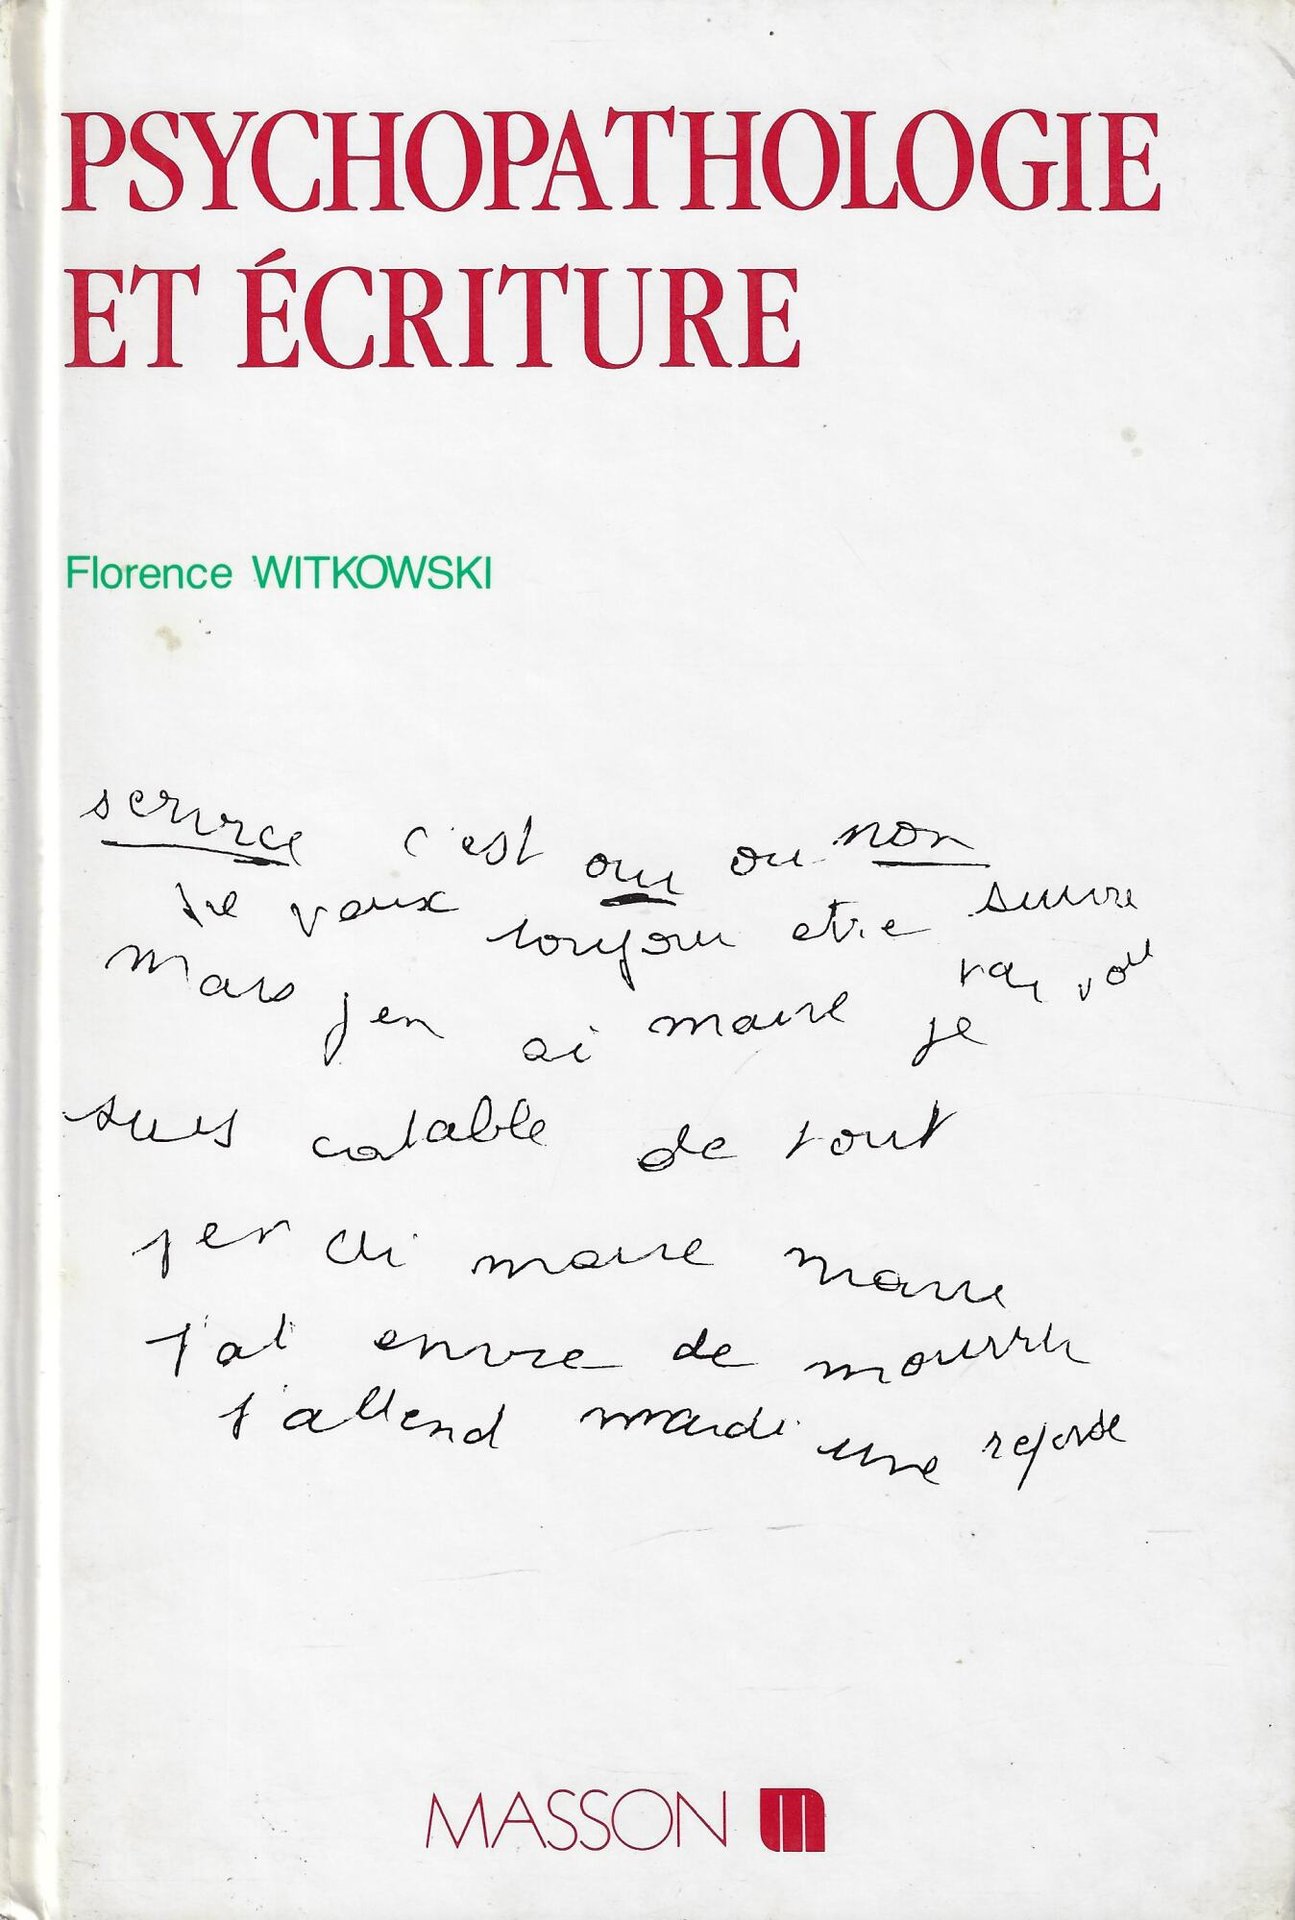 PSYCHOPATHOLOGIE
ET ÉCRITURE
Florence WITKOWSKI
service c'est oui ou non
Je veux toujour etre suivre
mais j'en ai marre je vai vou
suis catable de tout
j'en ai marre marre
J'ai envie de mourrir
J'attend mardi une reponse
MASSON